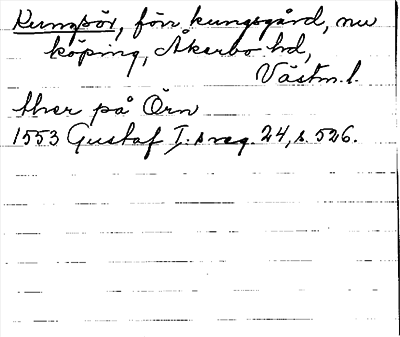 Kungsör, förr kungsgård, nu
köping, Åkerbo hd,
Västm. l.
ther på Örn
1553 Gustaf I:s reg. 24, s. 526.